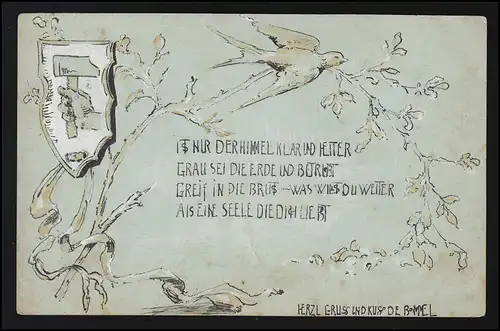 IST NUR DER HIMMEL KLAR UND HEITER
GRAU SEI DIE ERDE UND BETRÜBT
GREIF IN DIE BRUST — WAS WILLST DU WEITER
ALS EINE SEELE DIE DICH LIEBT
HERZL GRUSS UND KUSS DE BOMMEL